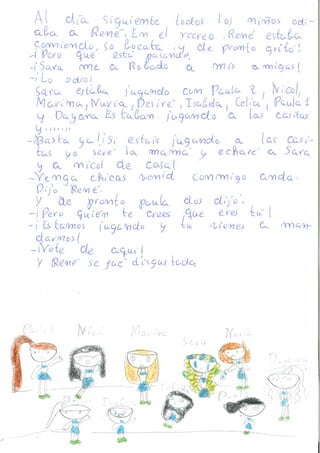 Al día siguiente todos los niños odi-
aba a René. En el recreo René estaba
comiendo, so bocata y de pronto grito!
-¡Pero que está pasando.
-¡Sara me a Robado a mis amigas!
-¡Lo odio!
Sara estaba jugando con Paula 2, Nicol,
Marina, Nuria, Desiré, Isabela, Celia, Paula 1
y Dayana Estaban jugando a las casitas
y.......
-¡Basta ya!¡Si estais jugando a las casi-
tas yo seré la mamá y echaré a Sara
y a nicol de casa!
-Venga chicas venid conmigo anda.
Dijo René.
y de pronto paula dos dijo.
-¡Pero quién te crees que eres tu!
-¡Estamos jugando y tu vienes a man-
darnos!
-¡Vete de aquí!
Y René se fué disgustada
Nicol
Sara
Nuria